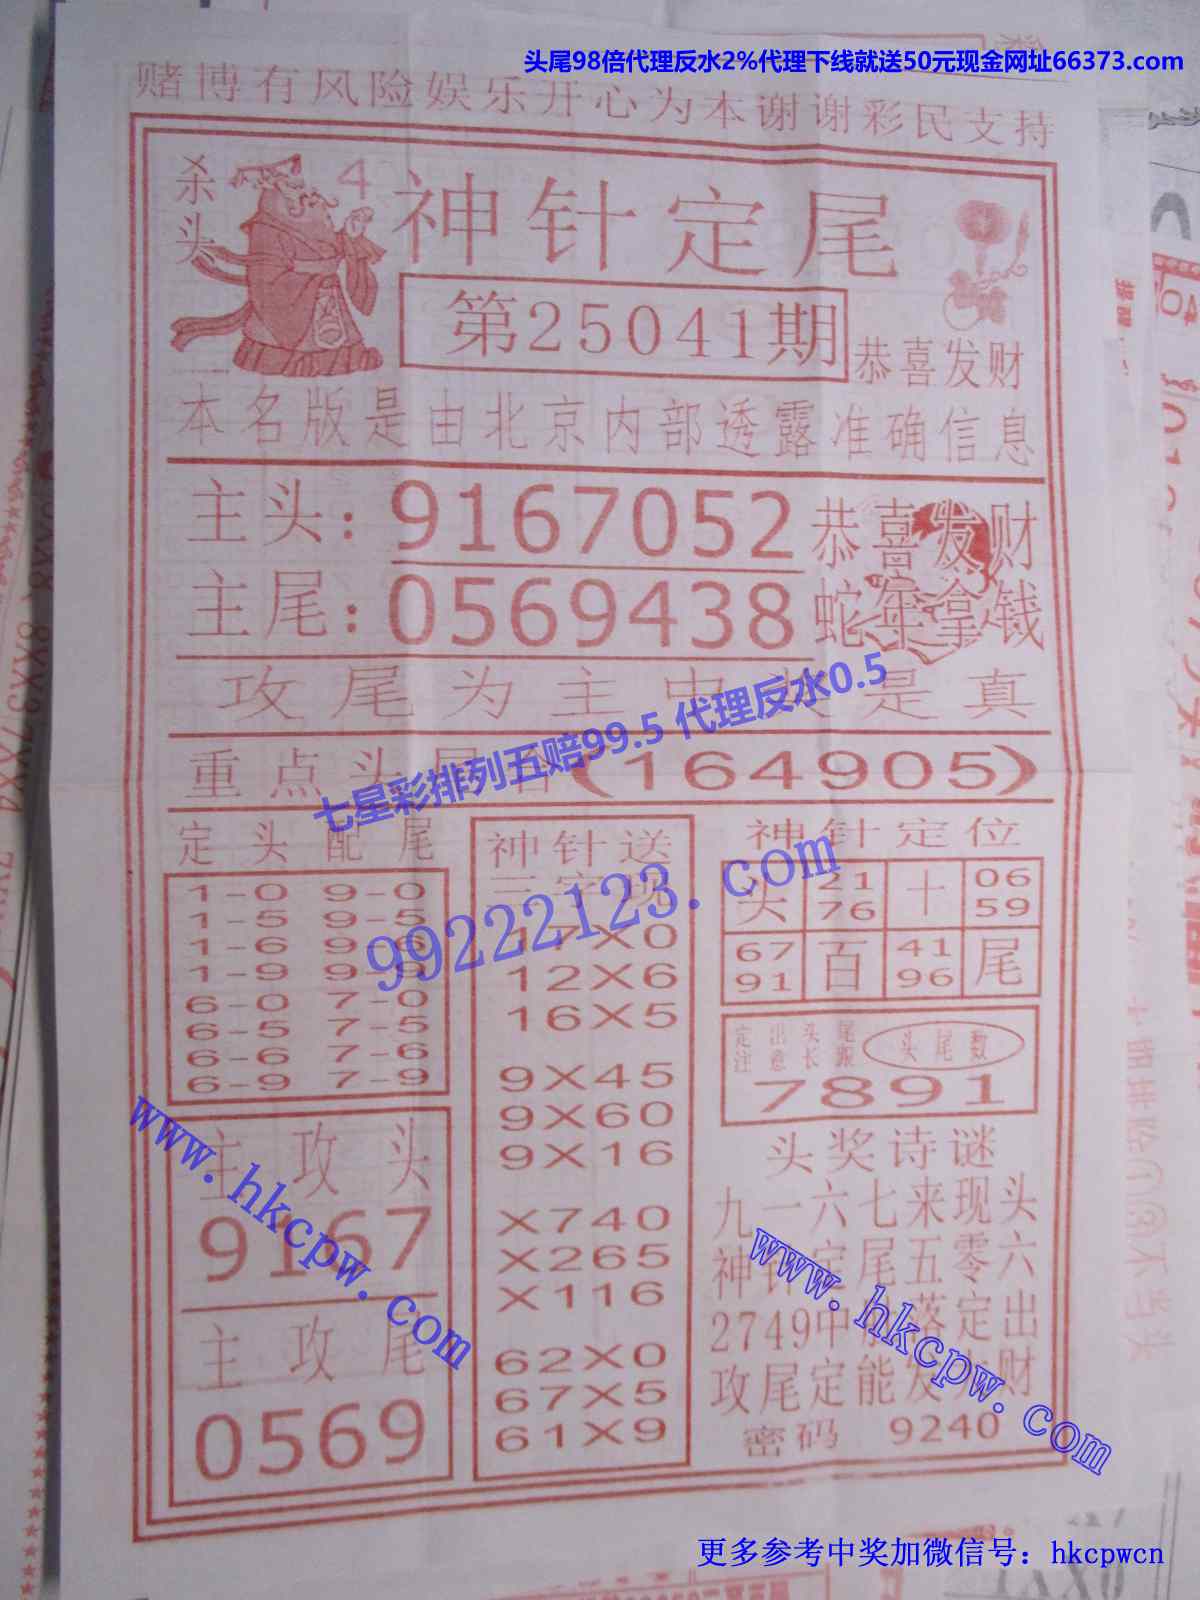 头尾98倍代理反水2%代理下线就送50元现金网址66373.com
赌博有风险娱乐开心为本谢谢彩民支持
杀头 4
神针定尾
第25041期
恭喜发财
本名版是由北京内部透露准确信息
主头: 9167052 恭喜发财
主尾: 0569438 蛇年拿钱
攻尾为主中 是真
七星彩排列五赔99.5 代理反水0.5
重点头尾 (164905)
定头配尾
1-0 9-0
1-5 9-5
1-6 9-6
1-9 9-9
6-0 7-0
6-5 7-5
6-6 7-6
6-9 7-9
99222123.com
主攻头
9167
主攻尾
0569
www.hkcpw.com
神针送
三字现
17X0
12X6
16X5
9X45
9X60
9X16
X740
X265
X116
62X0
67X5
61X9
神针定位
头 21 76 十 06 59
67 91 百 41 96 尾
定出头尾
注意长跟
头尾数
7891
头奖诗谜
九一六七来现头
神针定尾五零六
2749中 落定出
攻尾定能发 财
密码 9240
www.hkcpw.com
更多参考中奖加微信号：hkcpwcn